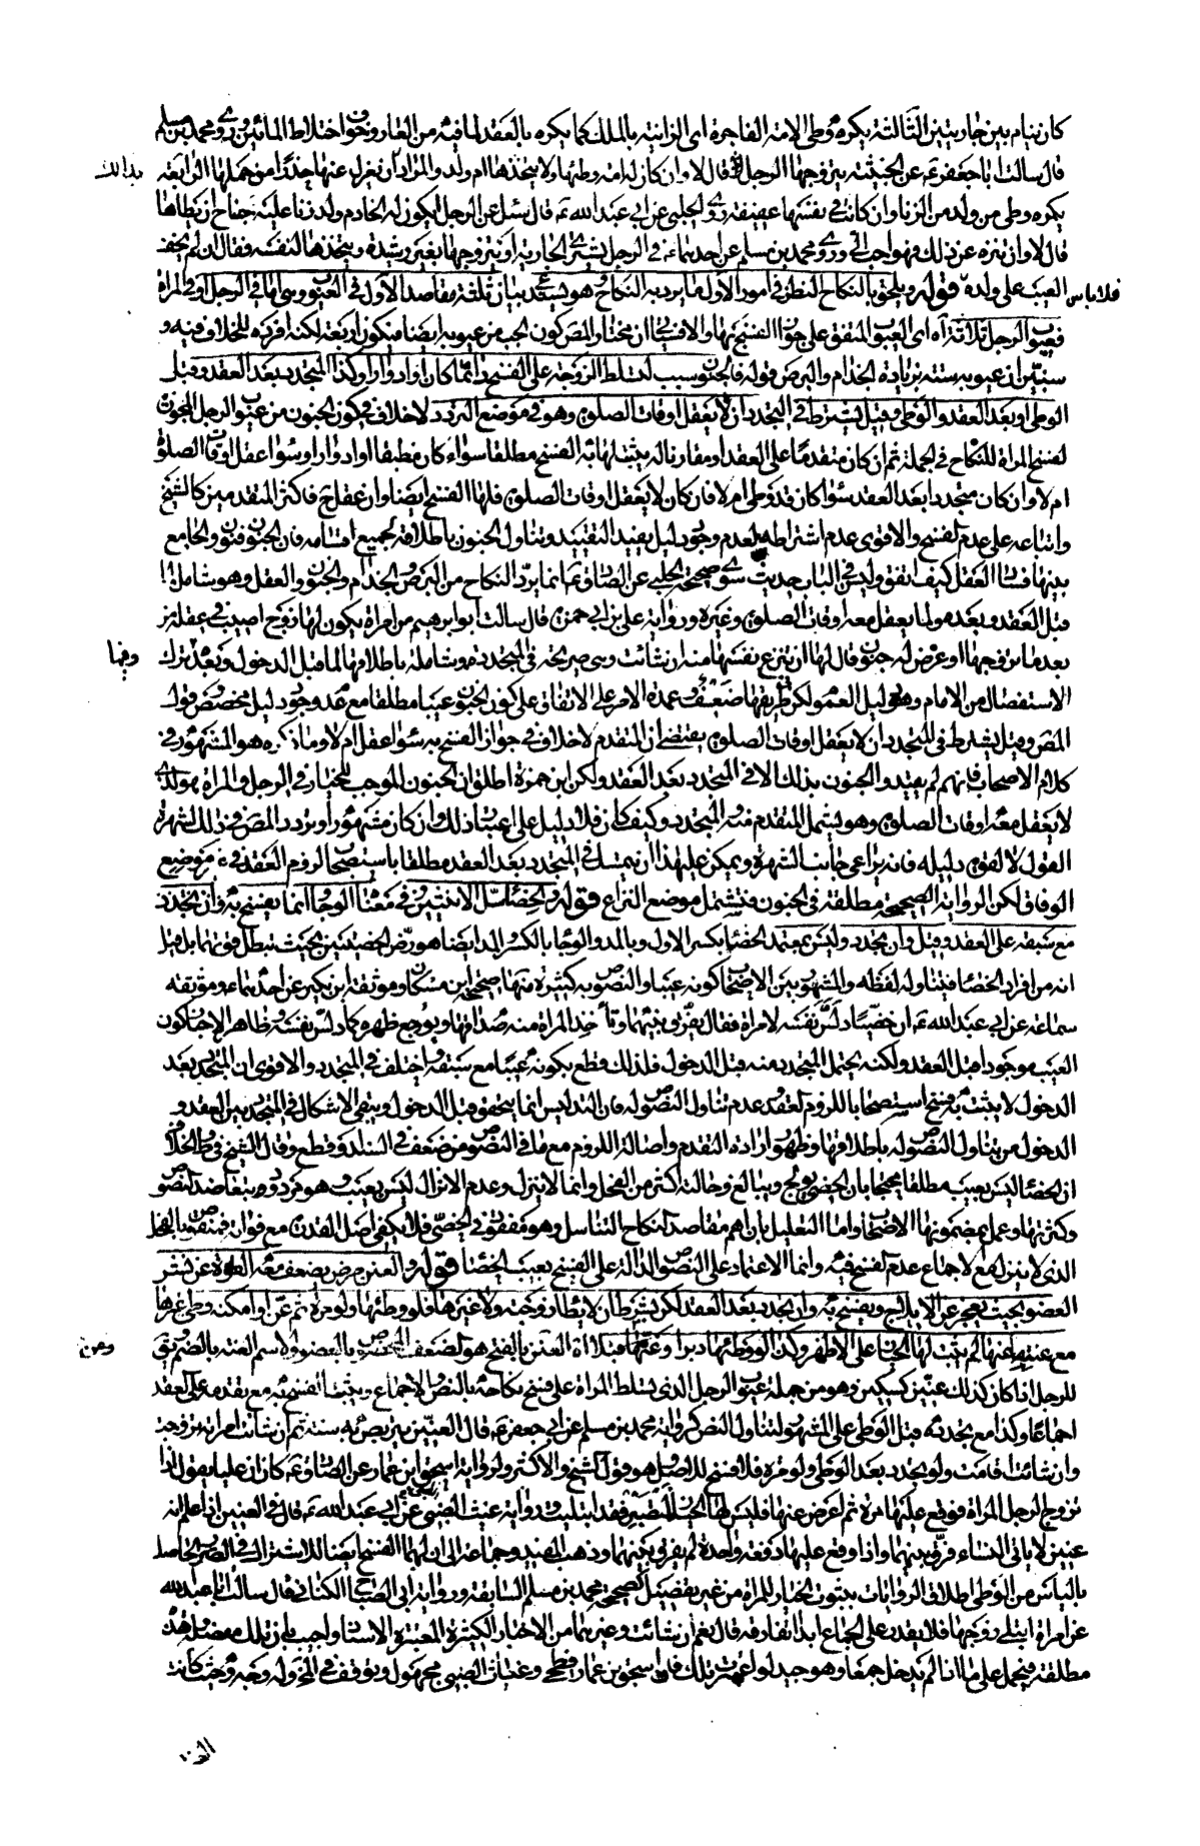 كان ينام بين جاريتين الثالثة يكره وطى الامة الفاجرة اى الزانية بالملك كما يكره بالعقد لما فيه من العار وخوف اختلاط المائين وروى محمد بن مسلم
قال سالت ابا جعفر ع عن الخبيثة يتزوجها الرجل قال لا وان كان له امة وطئها ولا يتخذها ام ولد والمراد ان يعزل عنها حذرا من حملها الرابعة
يكره وطى من ولد من الزنا وان كانت فى نفسها عفيفة روى الحلبى عن ابى عبد الله ع قال سئل عن الرجل يكون له الخادم ولد زنا عليه جناح ان يطاها
قال لا وان تنزه عن ذلك فهو احب الى وروى محمد بن مسلم عن احدهما ع فى الرجل يشترى الجارية او يتزوجها بغير رشدة ويتخذها لنفسه فقال ان لم يخف
العيب على ولده فلا باس قوله ويلحق بالنكاح النظر فى امور الاول ما يرد به النكاح وهو يستدعى بيان ثلثة مقاصد الاول فى العيوب وهى اما فى الرجل او فى المراة
فعيوب الرجل ثلاثة آه اى العيوب المتفق على جواز الفسخ بها والا فسياتى ان مختار المص كون الجب من عيوبه ايضا فيكون اربعة لكنه افرده للخلاف فيه و
سنبين ان عيوبه ستة بزيادة الجذام والبرص قوله فالجنون سبب لتسلط الزوجة على الفسخ دائما كان او ادوارا وكذا المتجدد بعد العقد وقبل
الوطى او بعد العقد والوطى وقيل يشترط فى المتجدد ان لا يعقل اوقات الصلوة وهو فى موضع التردد لا خلاف فى كون الجنون من عيوب الرجل المجوزة
لفسخ المراة للنكاح فى الجملة ثم ان كان متقدما على العقد او مقارنا له يثبت لها به الفسخ مطلقا سواء كان مطبقا او ادوارا وسواء عقل اوقات الصلوة
ام لا وان كان متجددا بعد العقد سواء كان قد وطى ام لا فان كان لا يعقل اوقات الصلوة فلها الفسخ ايضا وان عقل ح فاكثر المتقدمين كالشيخ
واتباعه على عدم الفسخ والاقوى عدم اشتراطه لعدم وجود دليل يفيد التقييد وتناول الجنون باطلاقه لجميع اقسامه فان الجنون فنون والجامع
بينها فساد العقل كيف اتفق وليس فى الباب حديث سوى صحيحة الحلبى عن الصادق ع انما يرد النكاح من البرص والجذام والجنون والعفل وهو شامل لما
قبل العقد وبعده ولما يعقل معه اوقات الصلوة وغيره ورواية على بن ابى حمزة قال سالت ابو ابرهيم عن امراة يكون لها زوج اصيب فى عقله من
بعد ما تزوجها او عرض له جنون قال لها ان تنزع نفسها منه ان شائت وهى صريحة فى المتجدد وشاملة باطلاقها لما قبل الدخول وبعده وفيها ترك
الاستفصال من الامام وهو دليل العموم لكن طريقها ضعيف وعمدة الامر على الاتفاق على كون الجنون عيبا مطلقا مع عدم وجود دليل مخصص وقول
المص وقيل يشترط فى المتجدد ان لا يعقل اوقات الصلوة يقتضى ان المتقدم لا خلاف فى جواز الفسخ به سواء عقل ام لا وما ذكره هو المشهور فى
كلام الاصحاب فانهم لم يقيدوا الجنون بذلك الا فى المتجدد بعد العقد ولكن ابن حمزة اطلق ان الجنون الموجب للخيار فى الرجل والمراة هو الذى
لا يعقل معه اوقات الصلوة وهو يشمل المتقدم منه والمتجدد وكيف كان فلا دليل على اعتبار ذلك وان كان مشهورا وتردد المص فى ذلك لشهرة
القول لا لقوة دليله فانه يراعى جانب الشهرة ويمكن على هذا ان يتمسك فى المتجدد بعد العقد مطلقا باستصحاب لزوم العقد فى غير موضع
الوفاق لكن الرواية الصحيحة مطلقة فى الجنون فتشمل موضع النزاع قوله والخصاء سل الانثيين وفى معناه الوجاء انما يفسخ به وان تجدد
مع سبقه على العقد وقيل وان تجدد وليس بمعتمد الخصاء بكسر الاول وبالمد والوجاء بالكسر والمد ايضا هو رض الخصيتين بحيث تبطل قوتهما بل قيل
انه من افراد الخصاء فيتناوله لفظه والمشهور بين الاصحاب كونه عيبا والنصوص به كثيرة منها صحيحة ابن مسكان وموثقة ابن بكير عن احدهما ع وموثقة
سماعة عن ابى عبد الله ع ان خصيا دلس نفسه لامراة فقال يفرق بينهما وتاخذ المراة منه صداقها ويوجع ظهره كما دلس نفسه وظاهر الاخبار كون
العيب موجودا قبل العقد ولكنه يحتمل المتجدد منه قبل الدخول فلذلك قطع بكونه عيبا مع سبقه واختلف فى المتجدد والاقوى ان المتجدد بعد
الدخول لا يثبت به فسخ استصحابا للزوم العقد وعدم تناول النصوص له فان التدليس انما يتحقق قبل الدخول ويبقى الاشكال فى المتجدد بين العقد و
الدخول من تناول النصوص له باطلاقها وظهور ارادة التقدم واصالة اللزوم مع ما فى النصوص من ضعف فى السند وقطع وقال الشيخ فى ط والخلاف
ان الخصاء ليس بعيب مطلقا محتجا بان الخصى يولج ويبالغ وحالته اكثر من الفحل وانما لا ينزل وعدم الانزال ليس بعيب وهو مردود بتعاضد النصوص
وكثرتها وعمل بمضمونها الاصحاب واما التعليل بان اهم مقاصد النكاح التناسل وهو مفقود فى الخصى فلا يكفى اصل القدرة مع فواته فمنتقض بالفحل
الذى لا ينزل مع الاجماع عدم الفسخ فيه وانما الاعتماد على النصوص الدالة على الفسخ بعيب الخصاء قوله والعنن مرض يضعف معه القوة عن نشر
العضو بحيث يعجز عن الايلاج ويفسخ به وان تجدد بعد العقد لكن بشرط ان لا يطا زوجته ولا غيرها فلو وطئها ولو مرة ثم عن او امكنه وطى غيرها
مع عننه عنها لم يثبت لها الخيار على الاظهر وكذا لو وطئها دبرا وعن عنها قبلا العنن بالفتح هو الضعف بالعضو والاسم العنة بالضم ويق
للرجل اذا كان كذلك عنين كسكين وهو من جملة عيوب الرجل الذى تسلط المراة على فسخ نكاحه بالنص والاجماع ويثبت الفسخ به مع تقدمه على العقد
اجماعا وكذا مع تجدده قبل الوطى على المشهور لتناول النص كرواية محمد بن مسلم عن ابى جعفر ع قال العنين يتربص به سنة ثم ان شائت امراته تزوجت
وان شائت اقامت ولو تجدد بعد الوطى ولو مرة فلا فسخ للاصل وهو قول الشيخ والاكثر ولرواية اسحق ابن عمار عن الصادق ع كان ان عليا يقول اذا
تزوج الرجل المراة فوقع عليها مرة ثم اعرض عنها فليس لها الخيار لتصبر فقد ابتليت ورواية غياث الضبى عن ابى عبد الله ع قال فى العنين اذا علم انه
عنين لا ياتى النساء فرق بينهما واذا وقع عليها دفعة واحدة لم يفرق بينهما وذهب المفيد وجماعة الى ان لها الفسخ ايضا للاشتراك فى الضرر الحاصل
بالياس من الوطى ولاطلاق الروايات بثبوت الخيار للمراة من غير تفصيل كصحيحة محمد بن مسلم السابقة ورواية ابى الصباح الكنانى قال سالت ابا عبد الله
عن امراة ابتلى زوجها فلا يقدر على الجماع ابدا تفارقه قال نعم ان شائت وغيرهما من الاخبار الكثيرة المعتبرة الاسناد واجيب بان تلك مفصلة وهذه
مطلقة فيحمل على ما اذا لم يدخل جمعا وهو جيد لو اعتبرت تلك فان اسحق بن عمار فطحى وغياث الضبى مجهول وتوقف فى المخ وله وجه وحيث كانت